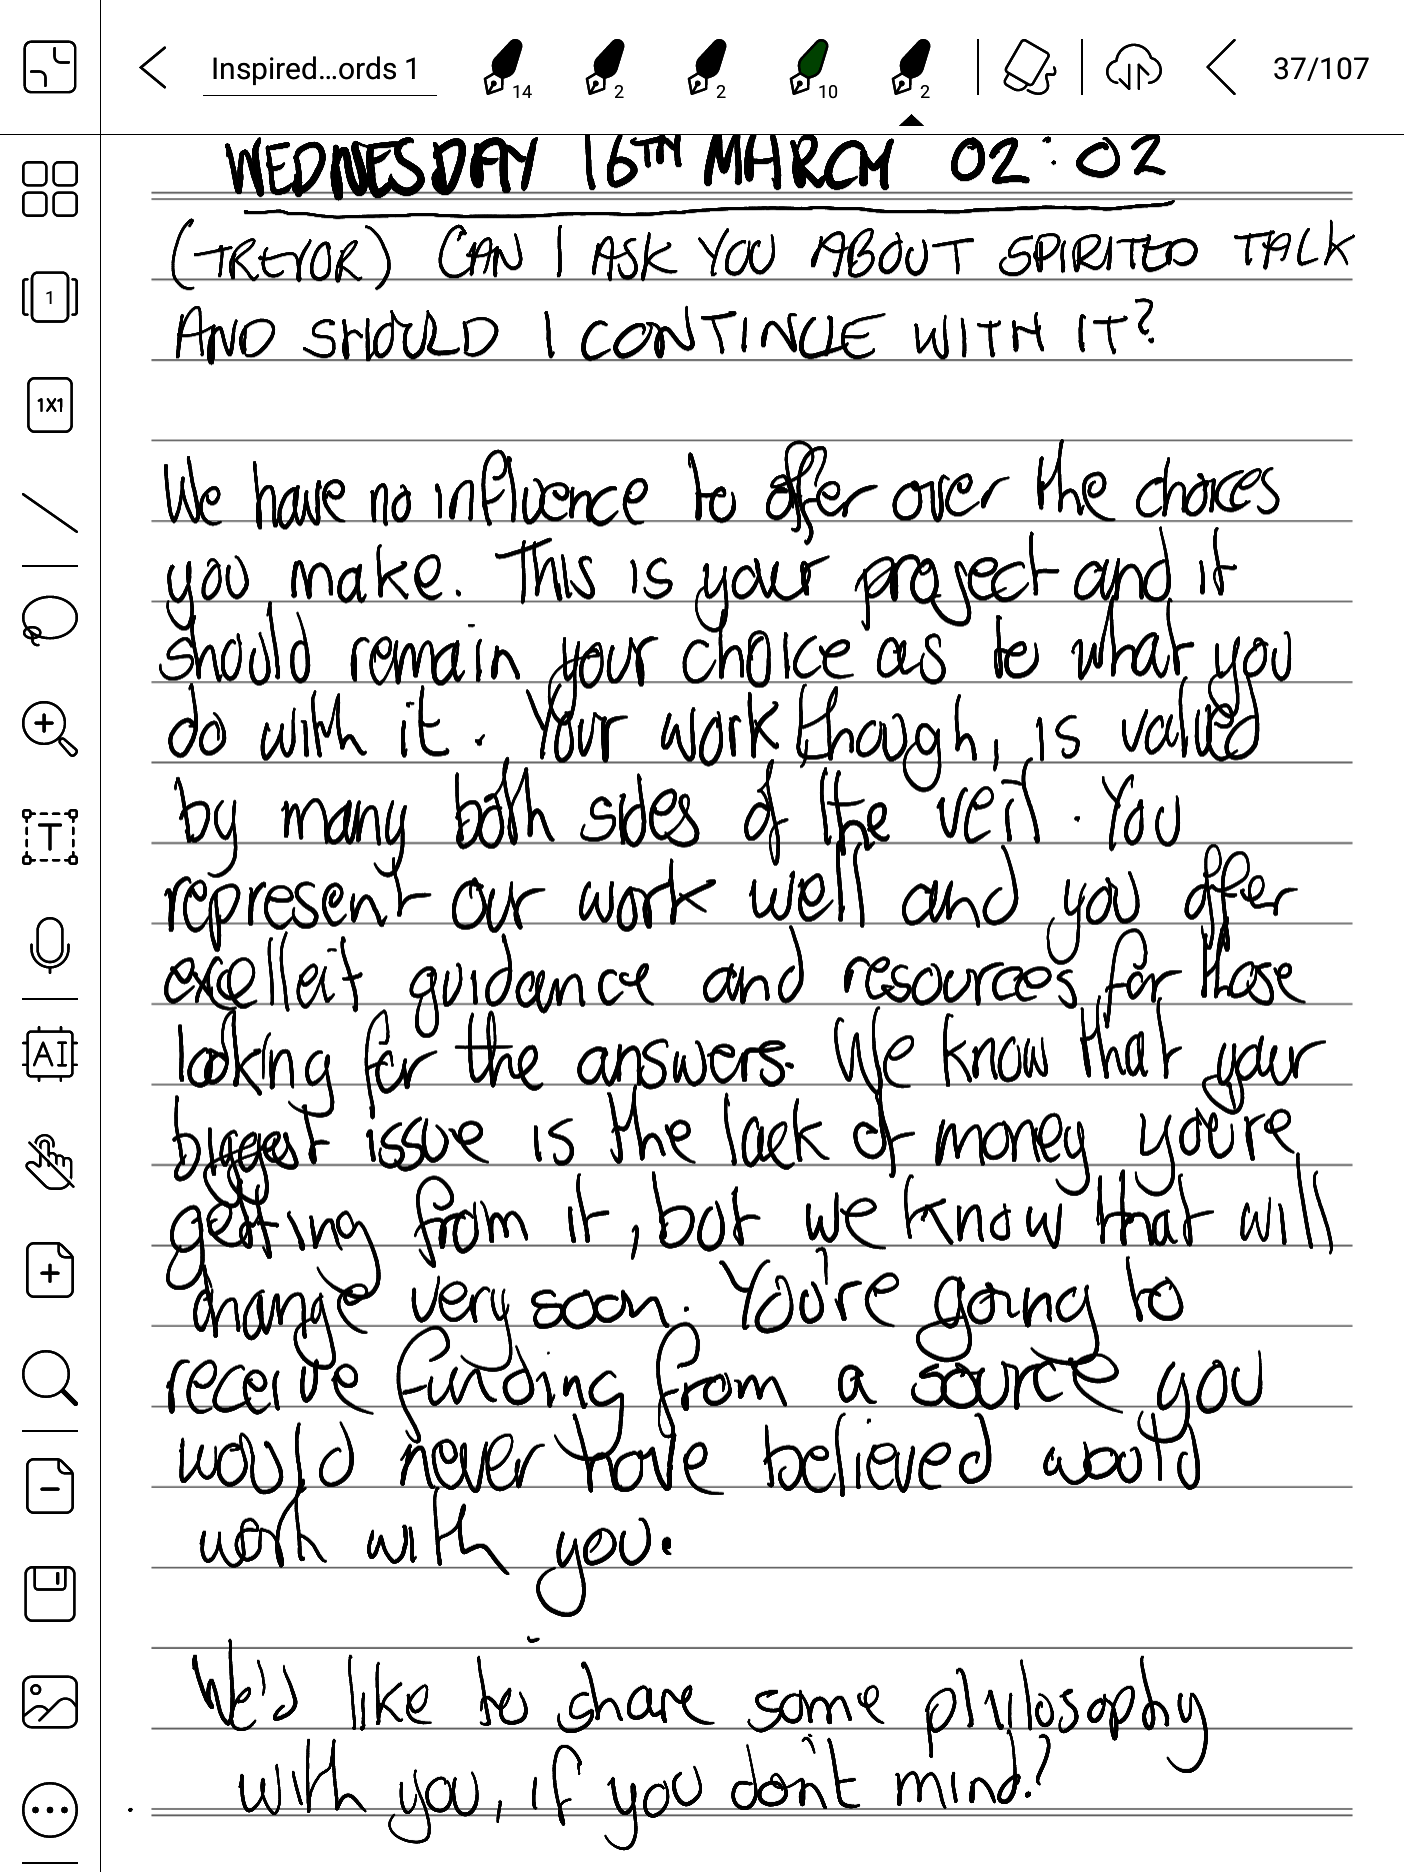 Inspired...ords 1
14
2
2
10
2
37/107
1
1X1
T
AI
WEDNESDAY 16TH MARCH 02:02
(TREVOR) CAN I ASK YOU ABOUT SPIRITED TALK
AND SHOULD I CONTINUE WITH IT?
We have no influence to offer over the choices
you make. This is your project and it
should remain your choice as to what you
do with it. Your work though, is valued
by many both sides of the veil. You
represent our work well and you offer
excellent guidance and resources for those
looking for the answers. We know that your
biggest issue is the lack of money you're
getting from it, but we know that will
change very soon. You're going to
receive funding from a source you
would never have believed would
work with you.
We'd like to share some phylosophy
with you, if you don't mind?